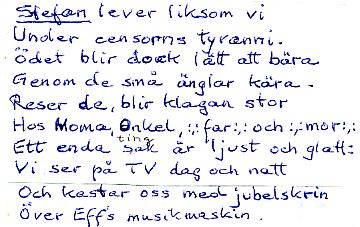 Stefan lever liksom vi
Under censorns tyranni.
Ödet blir dock lätt att bära
Genom de små änglar kära.
Reser de, blir klagan stor
Hos Moma, Onkel, :,: far :,: och :,: mor :,:
ting
Ett enda sak är ljust och glatt:
Vi ser på TV dag och natt
Och kastar oss med jubelskrin
Över Eff's musikmaskin.